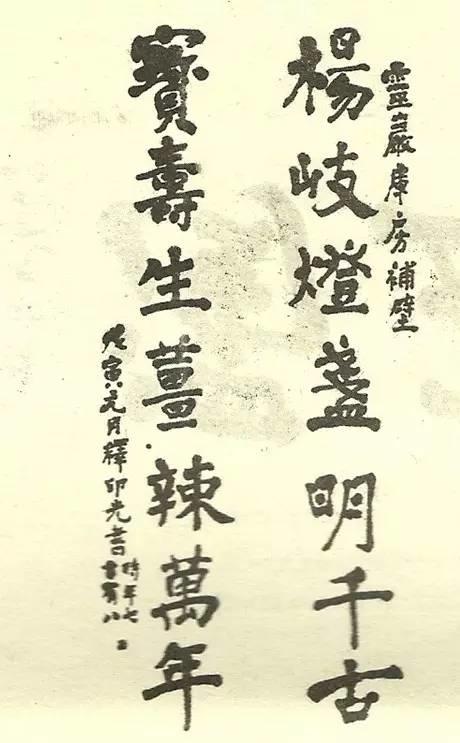 靈巖庫房補壁
楊岐燈盞明千古
寶壽生薑辣萬年
戊寅元月釋印光書
時年七
十有八